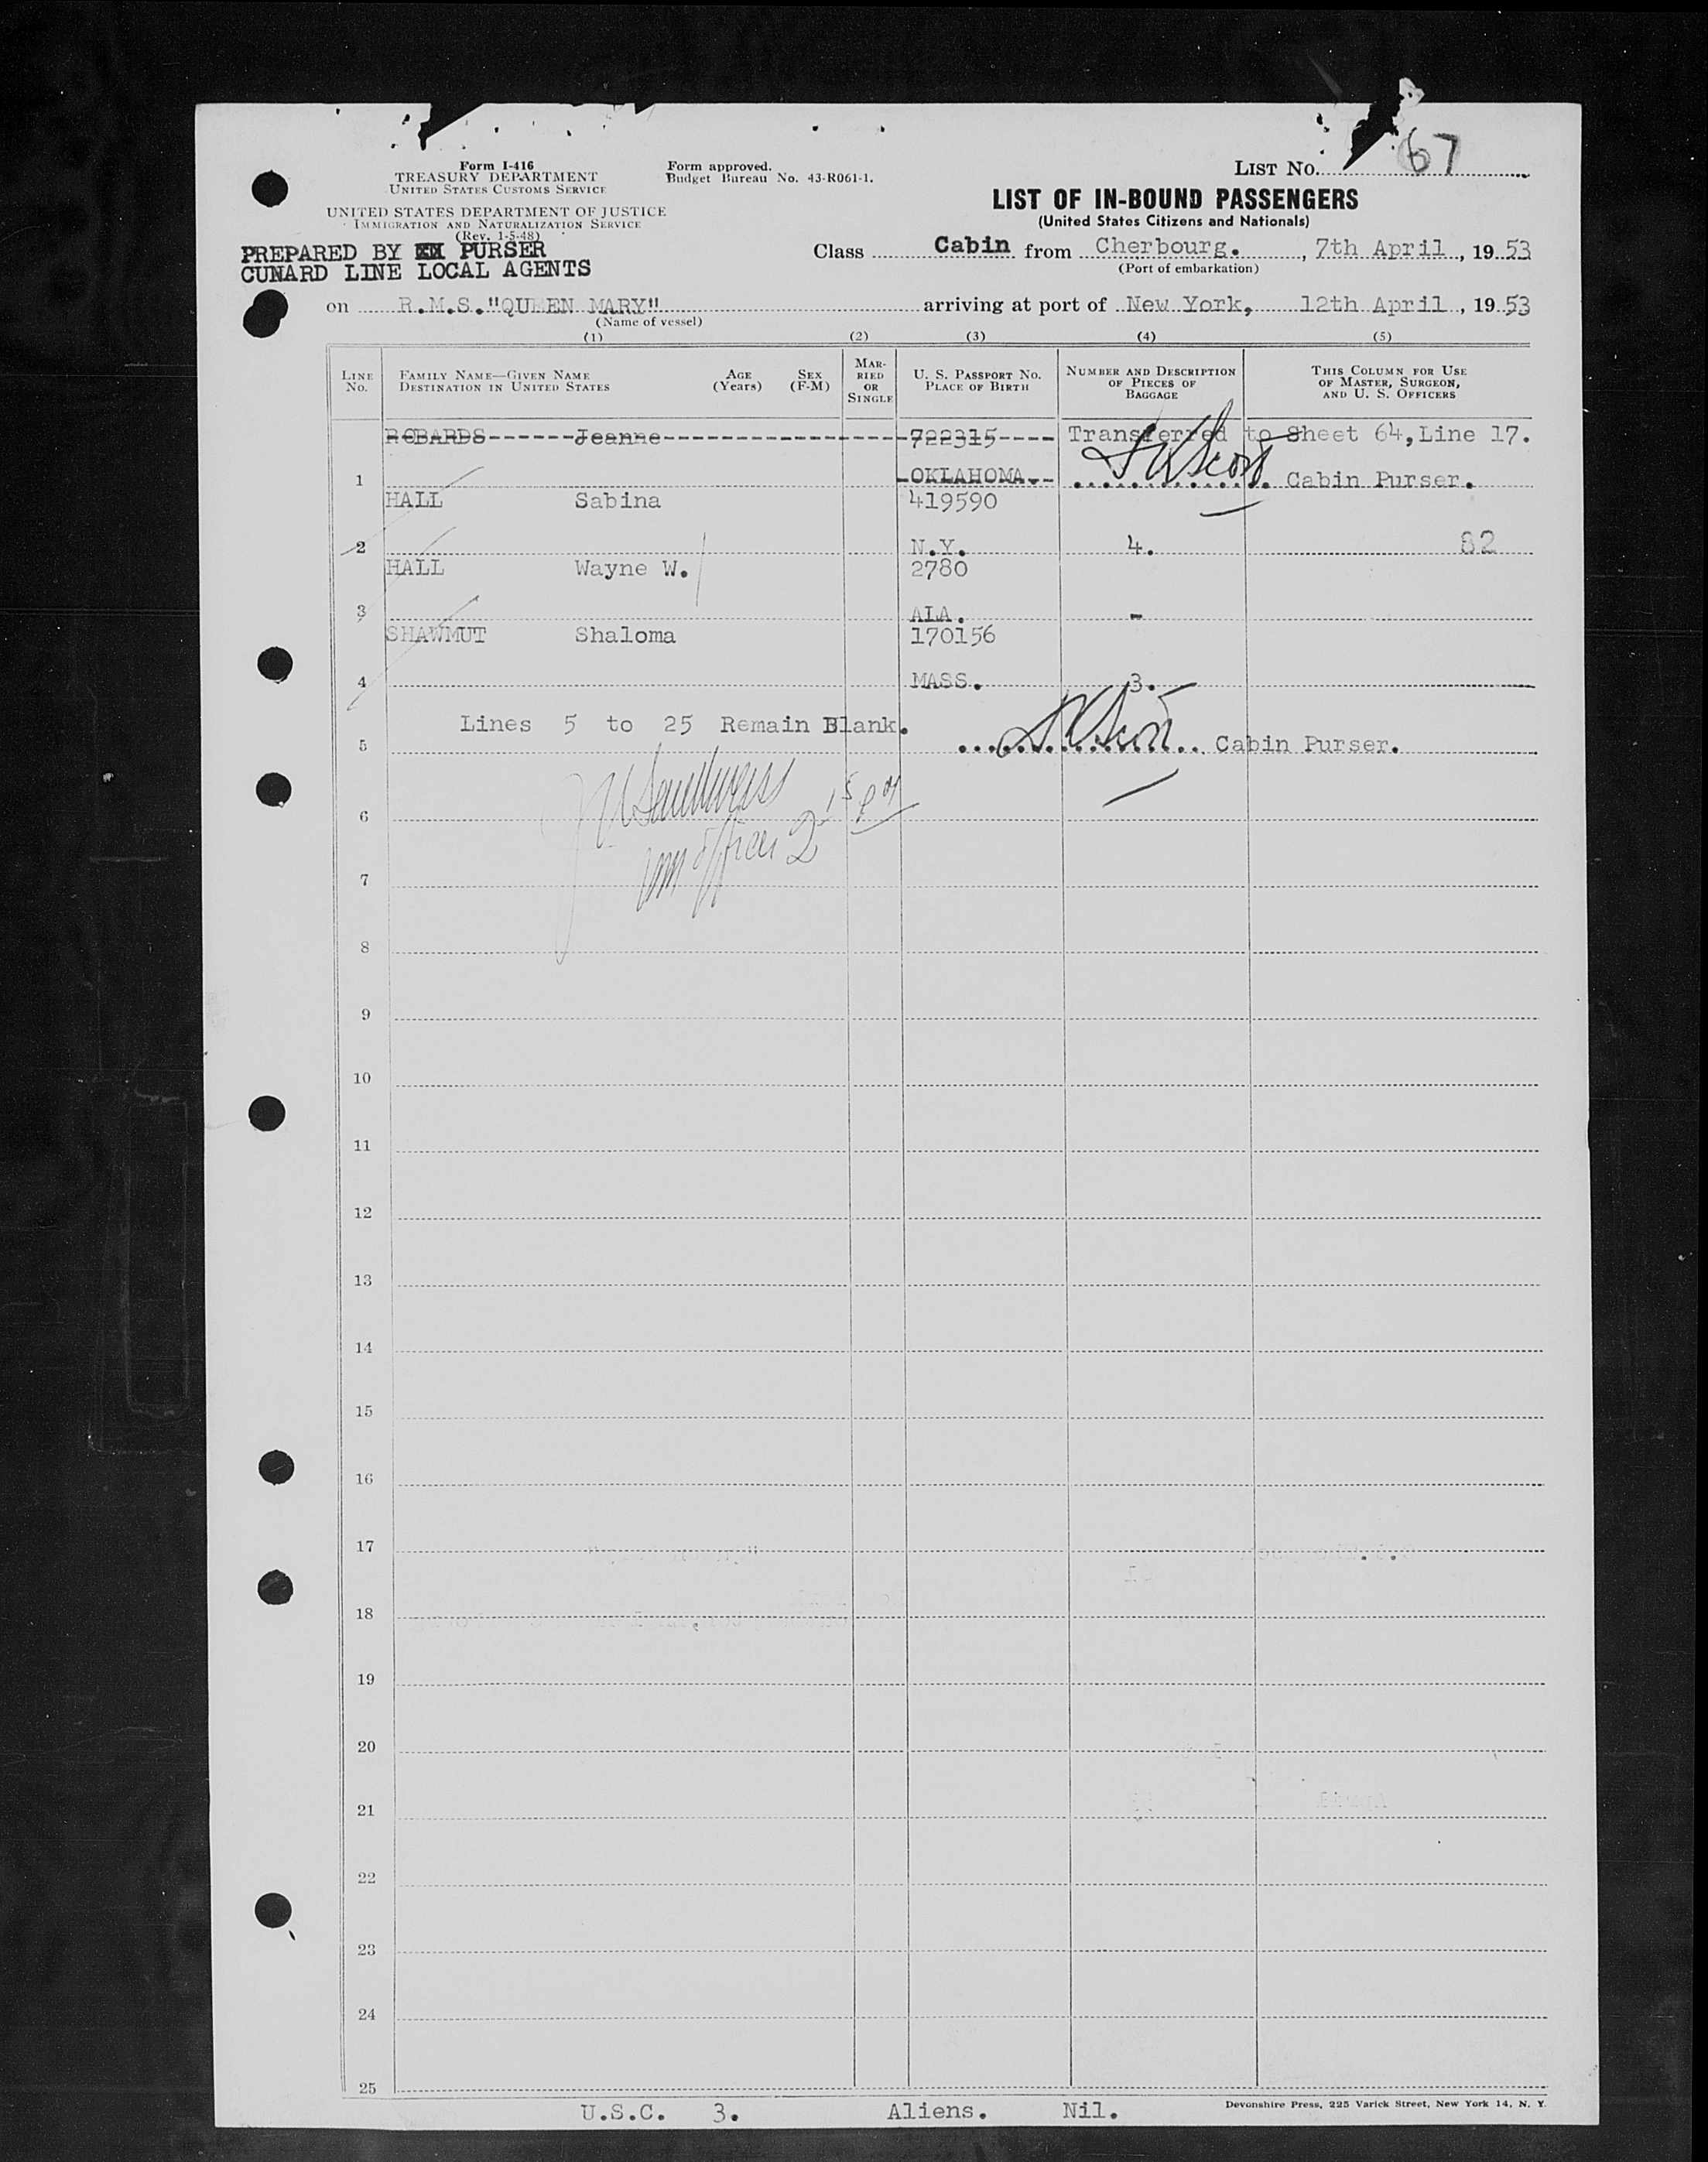 Form I-416
TREASURY DEPARTMENT
UNITED STATES CUSTOMS SERVICE
UNITED STATES DEPARTMENT OF JUSTICE
IMMIGRATION AND NATURALIZATION SERVICE
(Rev. 1-5-48)
Form approved.
Budget Bureau No. 43-R061-1.
LIST NO. 67
LIST OF IN-BOUND PASSENGERS
(United States Citizens and Nationals)
PREPARED BY XX PURSER
CUNARD LINE LOCAL AGENTS
Class Cabin from Cherbourg. , 7th April , 19 53
(Port of embarkation)
on R.M.S."QUEEN MARY" arriving at port of New York, 12th April , 19 53
(Name of vessel)
(1) (2) (3) (4) (5)
LINE NO. FAMILY NAME—GIVEN NAME DESTINATION IN UNITED STATES AGE (Years) SEX (F-M) MARRIED OR SINGLE U. S. PASSPORT NO. PLACE OF BIRTH NUMBER AND DESCRIPTION OF PIECES OF BAGGAGE THIS COLUMN FOR USE OF MASTER, SURGEON, AND U. S. OFFICERS
ROBARDS------Jeanne------------------------722315---- Transferred to Sheet 64,Line 17.
1 OKLAHOMA.-- Cabin Purser.
HALL Sabina 419590
2 N.Y. 4. 82
HALL Wayne W. 2780
3 ALA. -
SHAWMUT Shaloma 170156
4 MASS. 3.
Lines 5 to 25 Remain Blank.
5 Cabin Purser.
6
7
8
9
10
11
12
13
14
15
16
17
18
19
20
21
22
23
24
25
U.S.C. 3. Aliens. Nil.
Devonshire Press, 225 Varick Street, New York 14, N. Y.